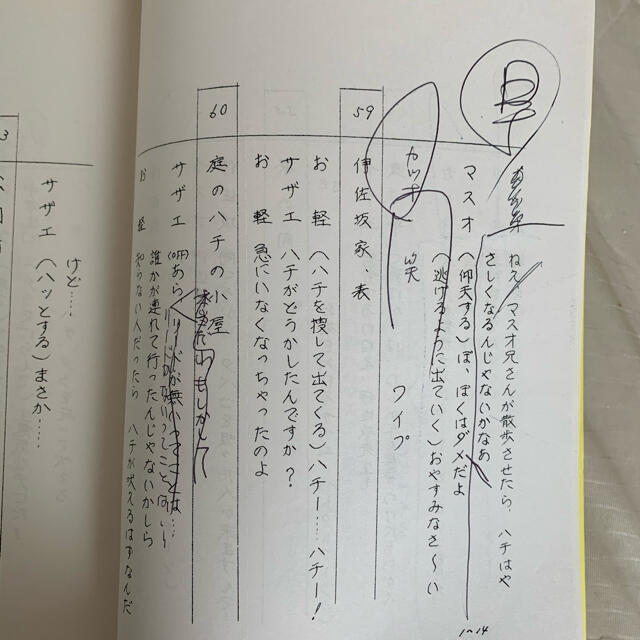 ねえ、マスオ兄さんが散歩させたら、ハチはや
さしくなるんじゃないかなあ
マスオ （仰天する）ぼ、ぼくはダメだよ
（逃げるように出ていく）おやすみなさ～い
カツオ 笑
ワイプ
59 伊佐坂家、表
お軽 （ハチを捜して出てくる）ハチー……ハチー！
サザエ ハチがどうかしたんですか？
お軽 急にいなくなっちゃったのよ
60 庭のハチの小屋
サザエ あら リードが無いってことは……
誰かが連れて行ったんじゃないかしら
お軽 知らない人だったら ハチが吠えるはずなんだ
けど……
サザエ （ハッとする）まさか……
3
1〜14